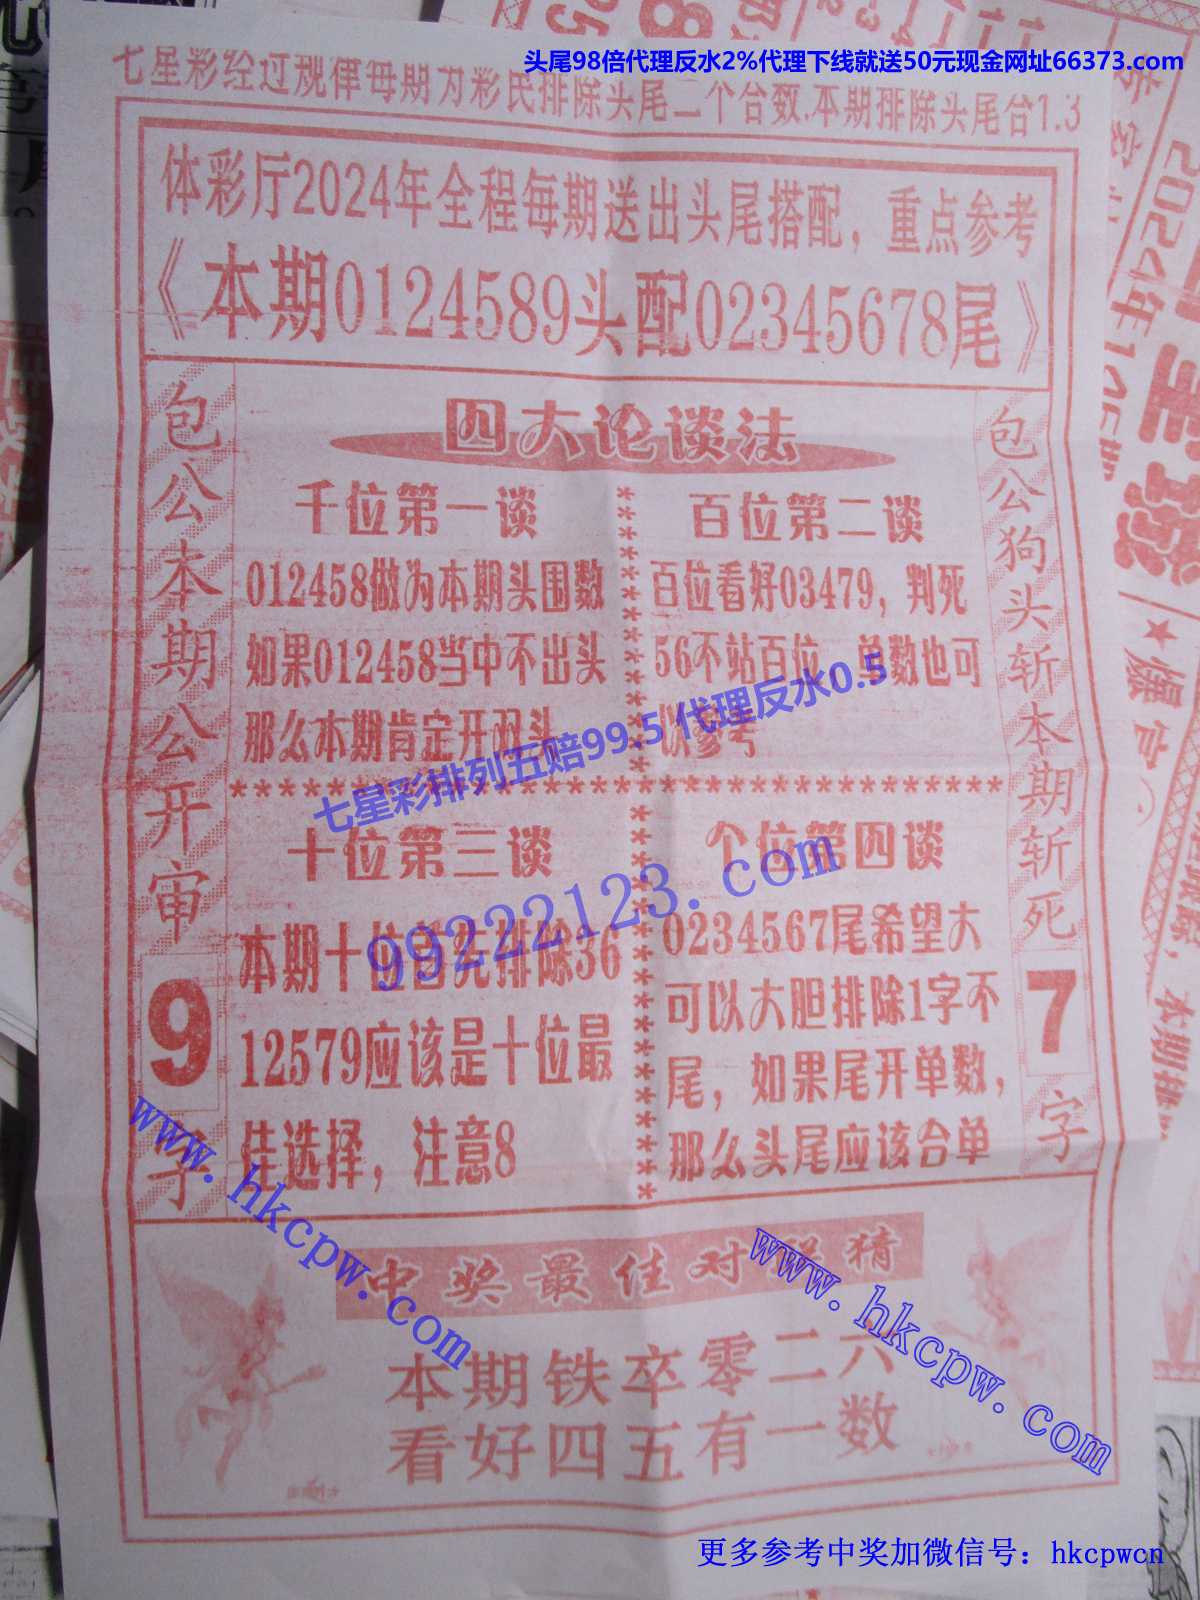 头尾98倍代理反水2%代理下线就送50元现金网址66373.com
七星彩经过规律每期为彩民排除头尾二个合数.本期排除头尾合1.3
体彩厅2024年全程每期送出头尾搭配，重点参考
《本期0124589头配02345678尾》
包公本期公开审
9
字
四大论谈法
千位第一谈
012458做为本期头围数
如果012458当中不出头
那么本期肯定开双头
百位第二谈
百位看好03479，判死
56不站百位，单数也可
以参考
七星彩排列五赔99.5 代理反水0.5
99222123.com
十位第三谈
本期十位首先排除36
12579应该是十位最
佳选择，注意8
个位第四谈
0234567尾希望大
可以大胆排除1字不
尾，如果尾开单数，
那么头尾应该合单
包公狗头斩本期斩死
7
字
www.hkcpw.com
www.hkcpw.com
中奖最佳对联猜
本期铁卒零二六
看好四五有一数
更多参考中奖加微信号：hkcpwcn
2024年
★爆官
本期排